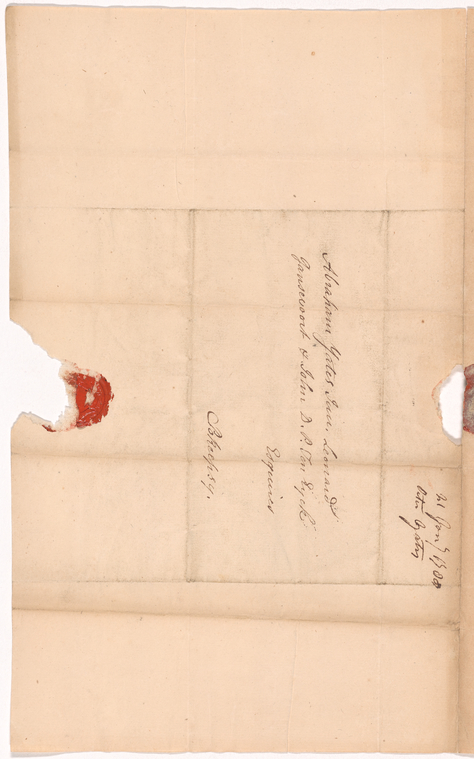 Abraham Yates Junr. Leonard
Gansevoort & John D. P. Ten Eyck
Esquires
Pokepsy.
21 Jany 1788
Peter Yates